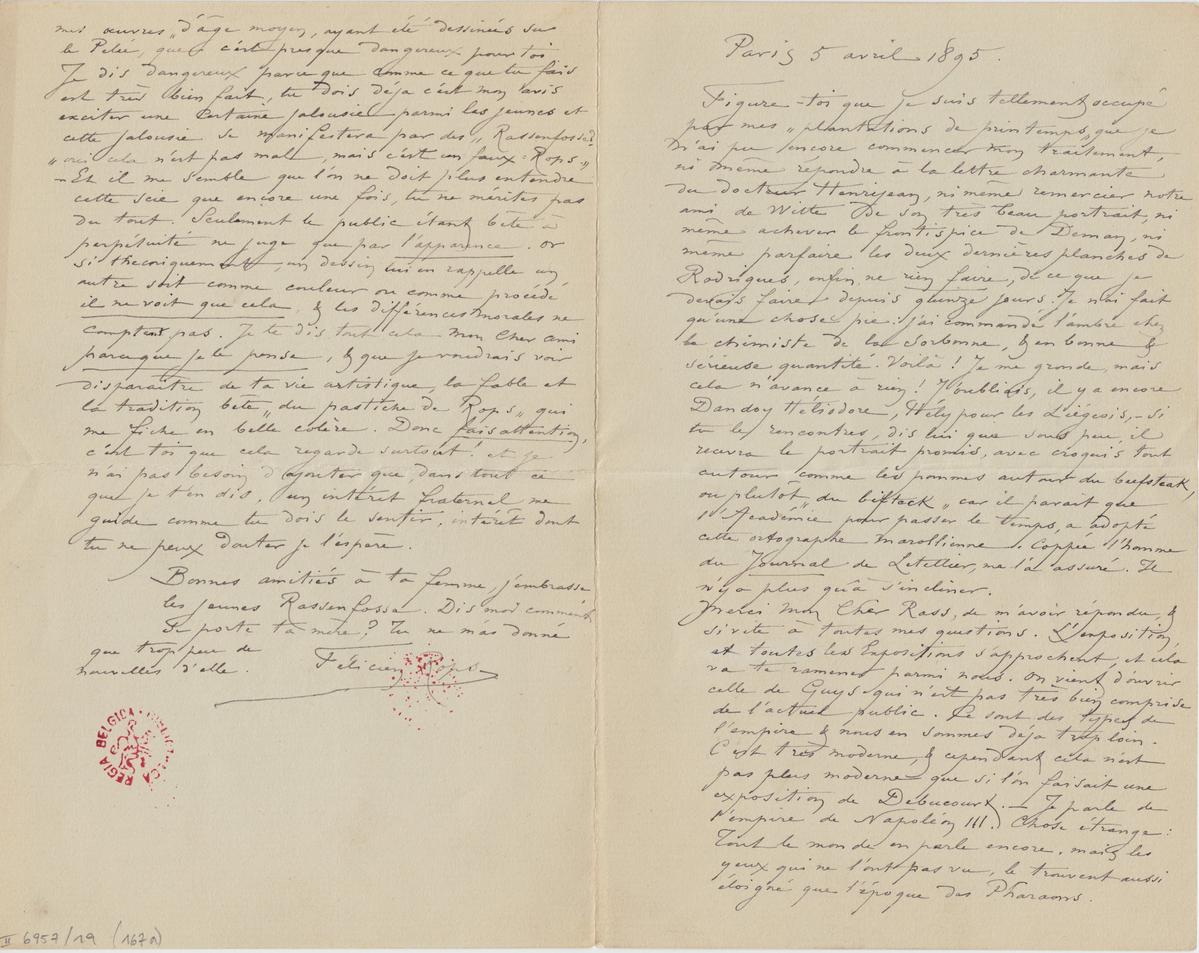 Paris 5 avril 1895.
Figure-toi que je suis tellement occupé
par mes „ plantations de printemps„ que je
n'ai pu encore commencer mon traitement,
ni même répondre à la lettre charmante
du docteur Henrijean, ni même remercier notre
ami de Witte de son très beau portrait, ni
même achever le frontispice de Deman, ni
même parfaire les deux dernières planches de
Rodrigues, enfin ne rien faire, de ce que je
devais faire depuis quinze jours. Je n'ai fait
qu'une chose pie : j'ai commandé l'ambre chez
le chimiste de la Sorbonne, & en bonne &
sérieuse quantité. Voilà ! Je me gronde, mais
cela n'avance à rien ! J'oubliais, il y a encore
Dandoy Héliodore, Hély pour les Liégeois, – si
tu le rencontres, dis lui que sous peu, il
recevra le portrait promis, avec croquis tout
autour comme les pommes autour du beefsteak,
ou plutôt „ du biftack „ car il parait que
l'Académie pour passer le temps, a adopté
cette ortographe marollienne. Coppée l'homme
du Journal de Letellier, me l'a assuré. Il
n'y a plus qu'à s'incliner.
Merci mon Cher Rass, de m'avoir répondu, &
si vite à toutes mes questions. L'exposition,
et toutes les Expositions s'approchent, et cela
va te ramener parmi nous. On vient d'ouvrir
celle de Guys qui n'est pas très bien comprise
de l'actuel public. Ce sont des types de
l'empire & nous en sommes déja trop loin.
C'est très moderne, & cependant cela n'est
pas plus moderne que si l'on faisait une
exposition de Debucourt. – Je parle de
l'empire de Napoléon III.) Chose étrange :
Tout le monde en parle encore, mais les
yeux qui ne l'ont pas vu, le trouvent aussi
éloigné que l'époque des Pharaons.
mes œuvres „ d'âge moyen, ayant été dessinées sur
le Pelée, que c'est presque dangereux pour toi
Je dis dangereux parce que comme ce que tu fais
est très bien fait, tu dois déja c'est mon avis
exciter une certaine jalousie parmi les jeunes et
cette jalousie se manifestera par des „ Rassenfosse?
„ oui cela n'est pas mal, mais c'est un faux-Rops „
– Et il me semble que l'on ne doit plus entendre
cette scie que encore une fois, tu ne mérites pas
du tout. Seulement le public étant bête à
perpétuité ne juge que par l'apparence. or
si théoriquement, un dessin lui en rappelle un
autre soit comme couleur ou comme procédé
il ne voit que cela, & les différences morales ne
comptent pas. Je te dis tout cela mon Cher ami
parceque je le pense, & que je voudrais voir
disparaître de ta vie artistique, la fable et
la tradition bête „ du pastiche de Rops „ qui
me fiche en belle colère. Donc fais attention,
c'est toi que cela regarde surtout ! et je
n'ai pas besoin d'ajouter que dans tout ce
que je t'en dis, un intérêt fraternel me
guide comme tu dois le sentir, intérêt dont
tu ne peux douter je l'espère.
Bonnes amitiés à ta femme, j'embrasse
les jeunes Rassenfosse. Dis moi comment
se porte ta mère ? Tu ne m'as donné
que trop peu de
nouvelles d'elle.
Félicien Rops
BELGICA
REGIA
II 6957/19 (167a)